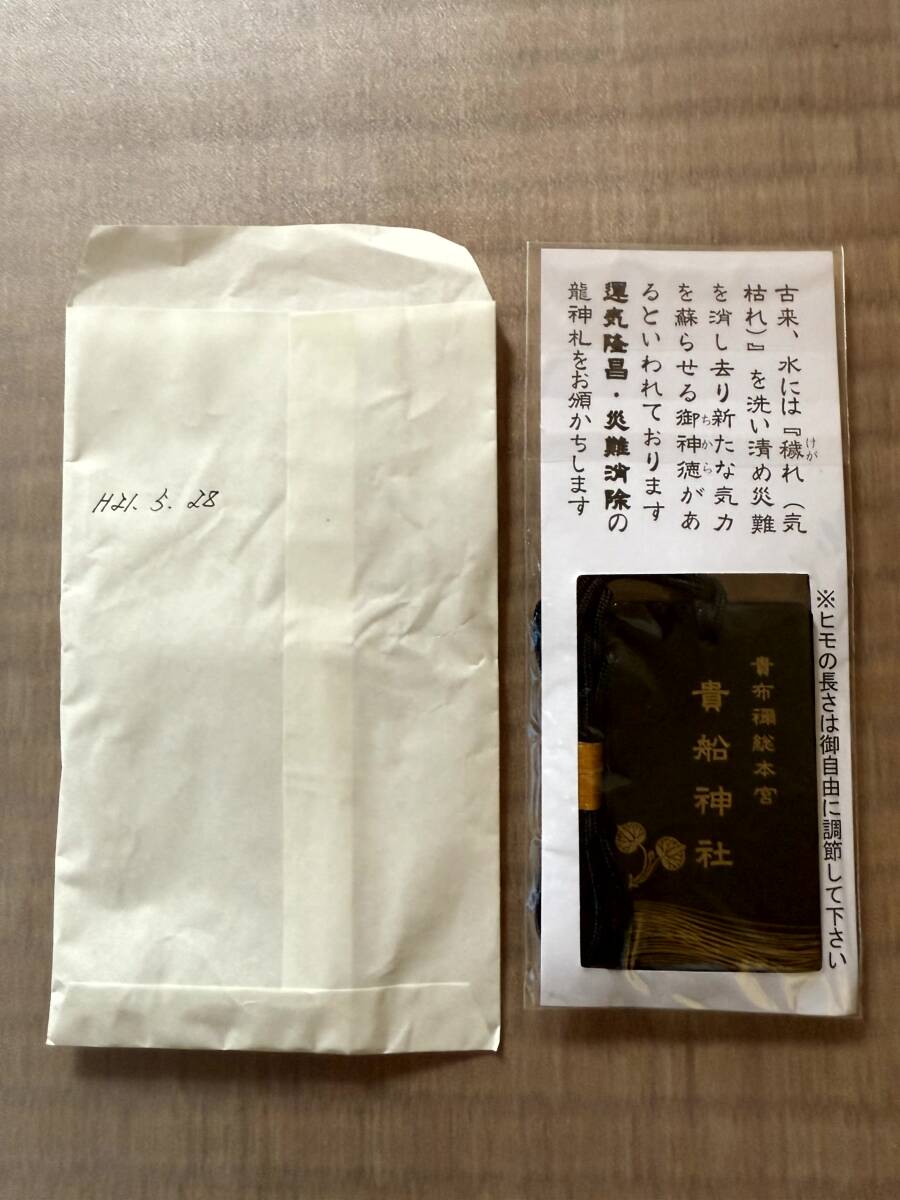 H21. 5. 28
古来、水には『穢れ（気
けが
枯れ）』を洗い清め災難
を消し去り新たな気力
を蘇らせる御神徳があ
ちから
るといわれております
運気隆昌・災難消除の
龍神札をお頒かちします
※ヒモの長さは御自由に調節して下さい
貴布禰総本宮
貴船神社